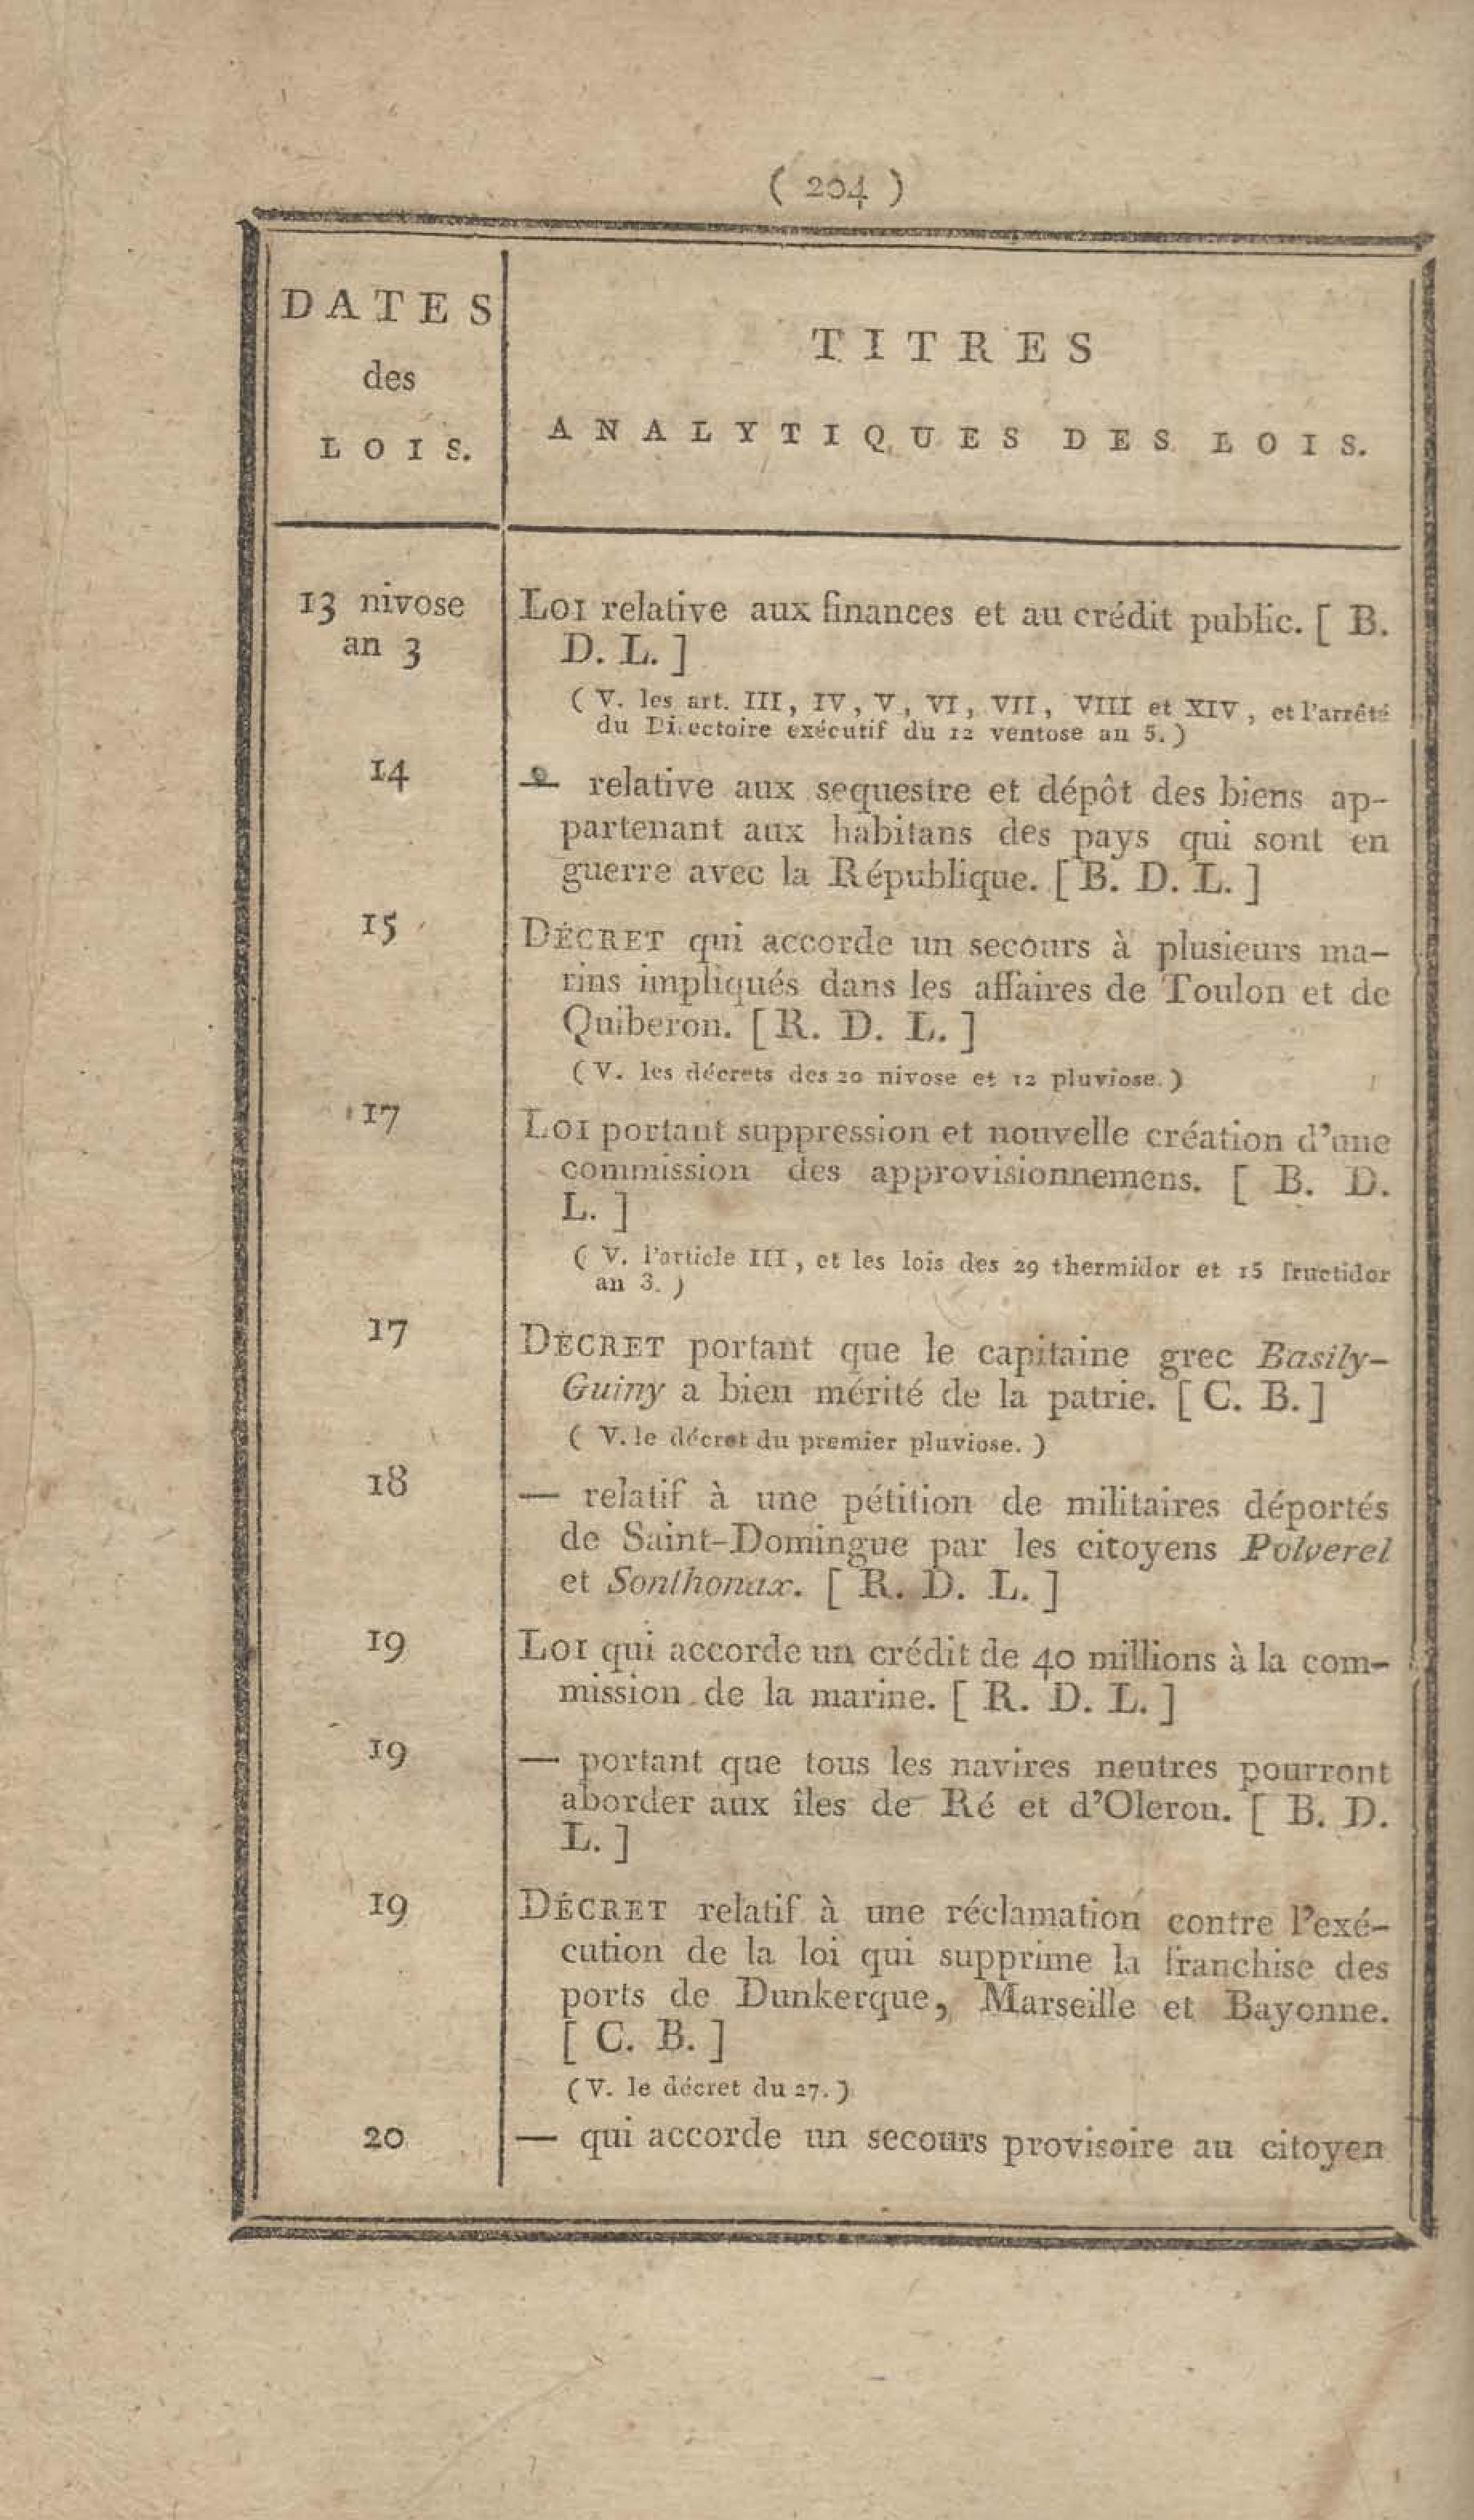 ( 204 )
DATES
des
LOIS.
TITRES
ANALYTIQUES DES LOIS.
13 nivose
an 3
LOI relative aux finances et au crédit public. [ B.
D. L. ]
( V. les art. III, IV, V, VI, VII, VIII et XIV, et l'arrêté
du Directoire exécutif du 12 ventose an 5. )
14
— relative aux sequestre et dépôt des biens ap-
partenant aux habitans des pays qui sont en
guerre avec la République. [ B. D. L. ]
15
DÉCRET qui accorde un secours à plusieurs ma-
rins impliqués dans les affaires de Toulon et de
Quiberon. [ R. D. L. ]
( V. les décrets des 20 nivose et 12 pluviose. )
17
LOI portant suppression et nouvelle création d'une
commission des approvisionnemens. [ B. D.
L. ]
( V. l'article III, et les lois des 29 thermidor et 15 fructidor
an 3. )
17
DÉCRET portant que le capitaine grec Basily-
Guiny a bien mérité de la patrie. [ C. B. ]
( V. le décret du premier pluviose. )
18
— relatif à une pétition de militaires déportés
de Saint-Domingue par les citoyens Polverel
et Sonthonax. [ R. D. L. ]
19
LOI qui accorde un crédit de 40 millions à la com-
mission de la marine. [ R. D. L. ]
19
— portant que tous les navires neutres pourront
aborder aux îles de Ré et d'Oleron. [ B. D.
L. ]
19
DÉCRET relatif à une réclamation contre l'exé-
cution de la loi qui supprime la franchise des
ports de Dunkerque, Marseille et Bayonne.
[ C. B. ]
( V. le décret du 27. )
20
— qui accorde un secours provisoire au citoyen